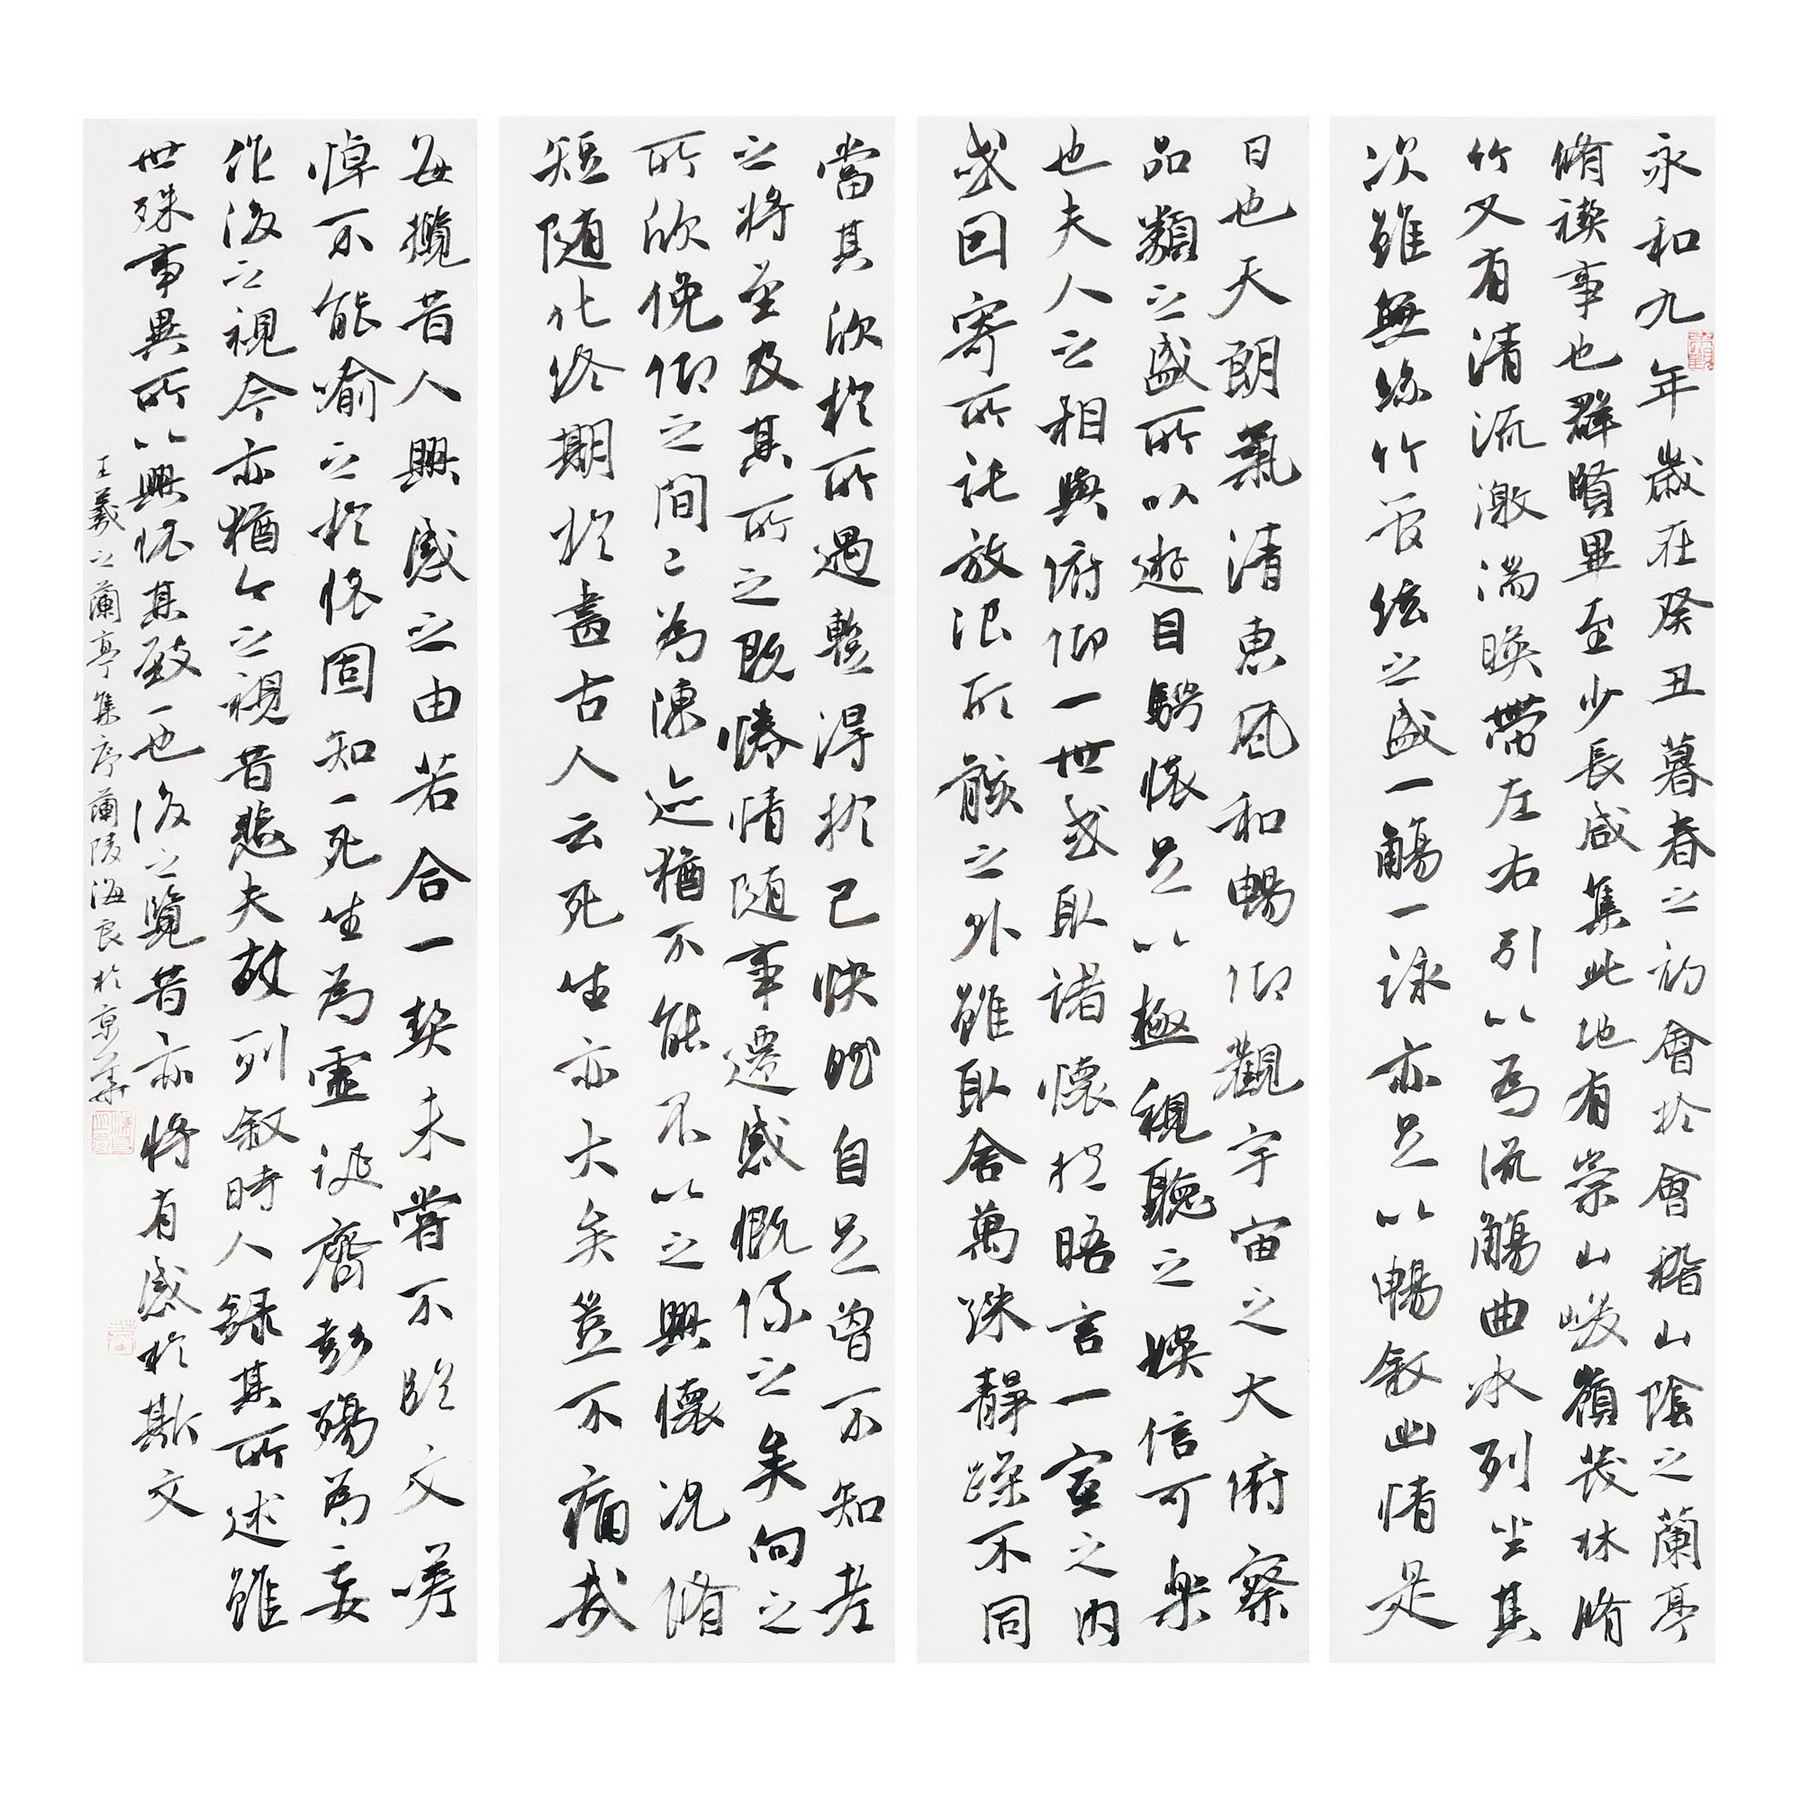 永和九年歲在癸丑暮春之初會於會稽山陰之蘭亭
脩禊事也群賢畢至少長咸集此地有崇山峻嶺茂林脩
竹又有清流激湍暎帶左右引以為流觴曲水列坐其
次雖無絲竹管絃之盛一觴一詠亦足以暢敘幽情是
日也天朗氣清惠風和暢仰觀宇宙之大俯察
品類之盛所以遊目騁懷足以極視聽之娛信可樂
也夫人之相與俯仰一世或取諸懷抱晤言一室之內
或因寄所託放浪形骸之外雖取舍萬殊靜躁不同
當其欣於所遇暫得於己快然自足曾不知老
之將至及其所之既惓情隨事遷感慨係之矣向之
所欣俛仰之間已為陳迹猶不能不以之興懷況脩
短隨化終期於盡古人云死生亦大矣豈不痛哉
每攬昔人興感之由若合一契未嘗不臨文嗟
悼不能喻之於懷固知一死生為虛誕齊彭殤為妄
作後之視今亦猶今之視昔悲夫故列敘時人錄其所述雖
世殊事異所以興懷其致一也後之覽昔亦將有感於斯文
王羲之蘭亭集序蘭陵海良於京華